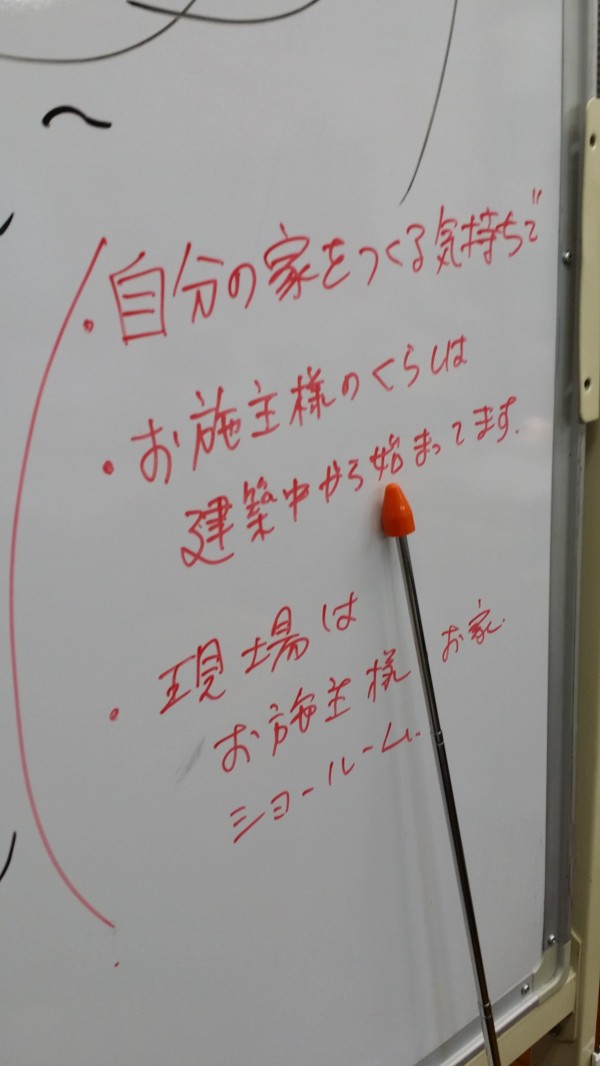 ・自分の家をつくる気持ちで
・お施主様のくらしは
建築中から始まってます.
・現場は
お施主様 お家.
ショールーム.